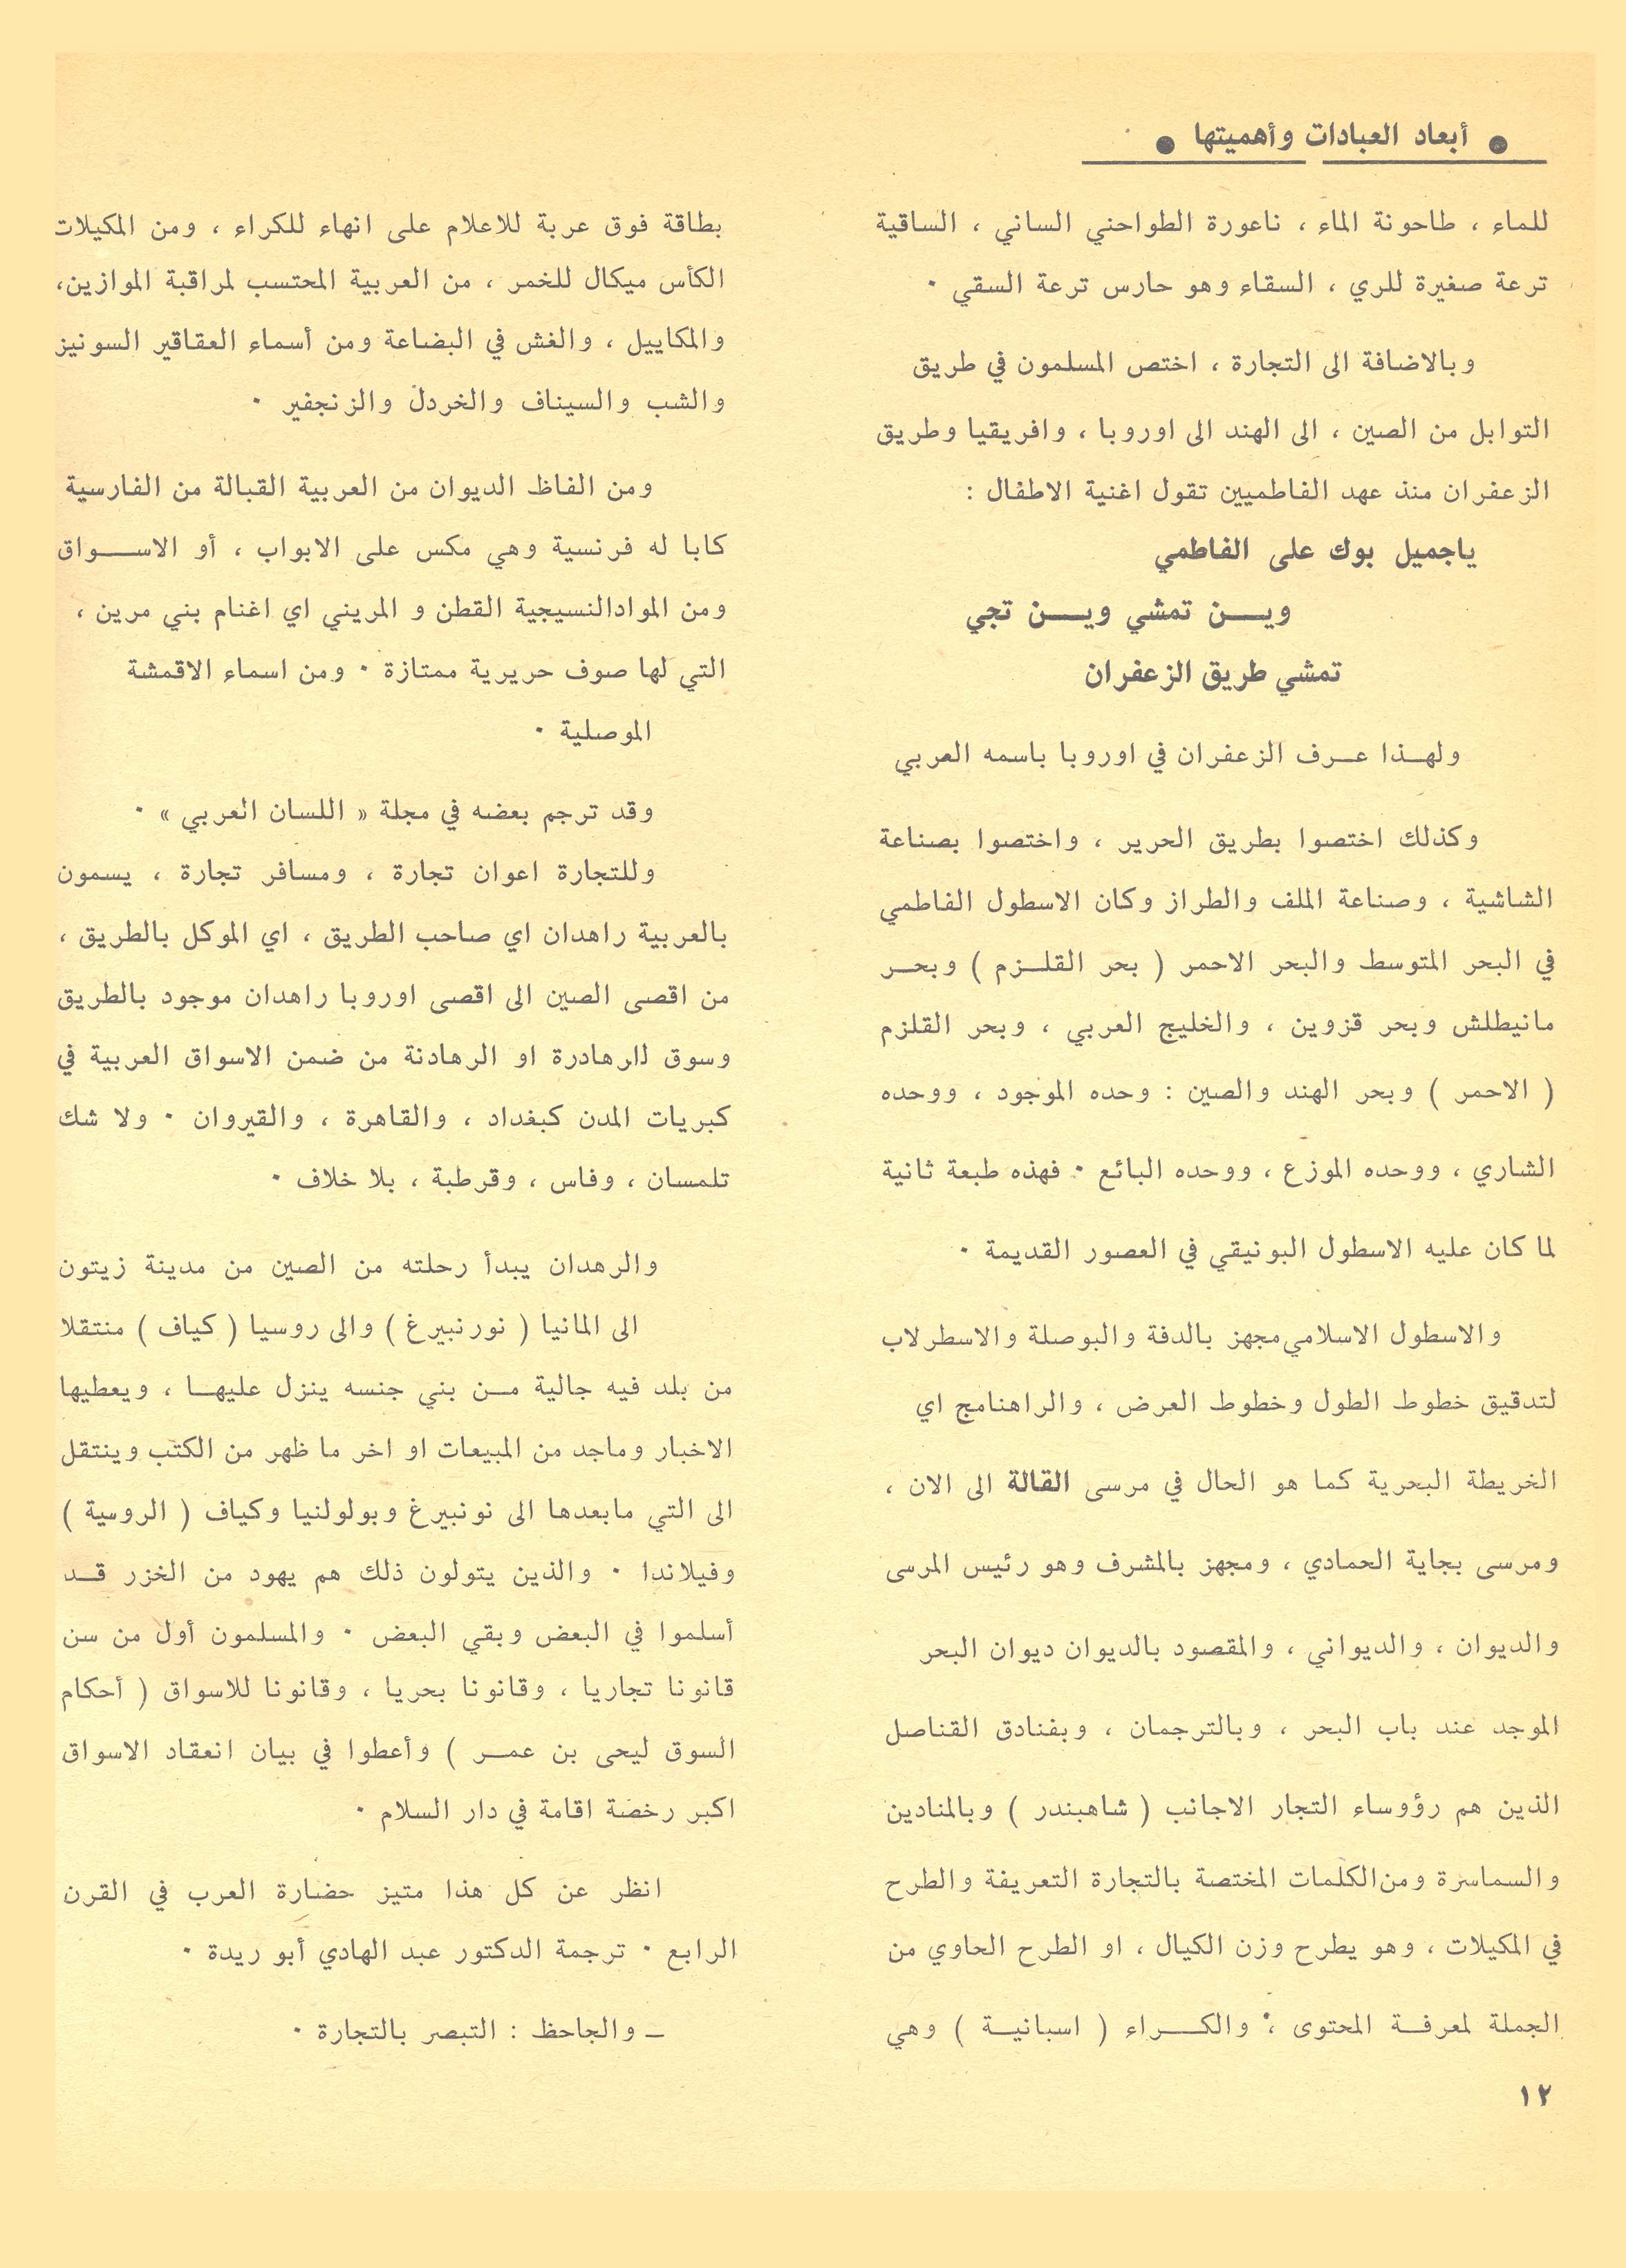 ● أبعاد العبادات وأهميتها ●
للماء ، طاحونة الماء ، ناعورة الطواحني الساني ، الساقية
ترعة صغيرة للري ، السقاء وهو حارس ترعة السقي ٠
وبالاضافة الى التجارة ، اختص المسلمون في طريق
التوابل من الصين ، الى الهند الى اوروبا ، وافريقيا وطريق
الزعفران منذ عهد الفاطميين تقول اغنية الاطفال :
ياجميل بوك على الفاطمي
ويــن تمشي ويــن تجي
تمشي طريق الزعفران
ولهـذا عـرف الزعفران في اوروبا باسمه العربي
وكذلك اختصوا بطريق الحرير ، واختصوا بصناعة
الشاشية ، وصناعة الملف والطراز وكان الاسطول الفاطمي
في البحر المتوسط والبحر الاحمر ( بحر القلـزم ) وبحـر
مانيطلش وبحر قزوين ، والخليج العربي ، وبحر القلزم
( الاحمر ) وبحر الهند والصين : وحده الموجود ، ووحده
الشاري ، ووحده الموزع ، ووحده البائع ٠ فهذه طبعة ثانية
لما كان عليه الاسطول البونيقي في العصور القديمة ٠
والاسطول الاسلامي مجهز بالدفة والبوصلة والاسطرلاب
لتدقيق خطوط الطول وخطوط العرض ، والراهنامج اي
الخريطة البحرية كما هو الحال في مرسى القالة الى الان ،
ومرسى بجاية الحمادي ، ومجهز بالمشرف وهو رئيس المرسى
والديوان ، والديواني ، والمقصود بالديوان ديوان البحر
الموجد عند باب البحر ، وبالترجمان ، وبفنادق القناصل
الذين هم رؤوساء التجار الاجانب ( شاهبندر ) وبالمنادين
والسماسرة ومن الكلمات المختصة بالتجارة التعريفة والطرح
في المكيلات ، وهو يطرح وزن الكيال ، او الطرح الحاوي من
الجملة لمعرفـة المحتوى ، والكــراء ( اسبانيـة ) وهي
١٢
بطاقة فوق عربة للاعلام على انهاء للكراء ، ومن المكيلات
الكأس ميكال للخمر ، من العربية المحتسب لمراقبة الموازين،
والمكاييل ، والغش في البضاعة ومن أسماء العقاقير السونيز
والشب والسيناف والخردل والزنجفير ٠
ومن الفاظ الديوان من العربية القبالة من الفارسية
كابا له فرنسية وهي مكس على الابواب ، أو الاســواق
ومن الموادالنسيجية القطن و المريني اي اغنام بني مرين ،
التي لها صوف حريرية ممتازة ٠ ومن اسماء الاقمشة
الموصلية ٠
وقد ترجم بعضه في مجلة « اللسان العربي » ٠
وللتجارة اعوان تجارة ، ومسافر تجارة ، يسمون
بالعربية راهدان اي صاحب الطريق ، اي الموكل بالطريق ،
من اقصى الصين الى اقصى اوروبا راهدان موجود بالطريق
وسوق لارهادرة او الرهادنة من ضمن الاسواق العربية في
كبريات المدن كبغداد ، والقاهرة ، والقيروان ٠ ولا شك
تلمسان ، وفاس ، وقرطبة ، بلا خلاف ٠
والرهدان يبدأ رحلته من الصين من مدينة زيتون
الى المانيا ( نورنبيرغ ) والى روسيا ( كياف ) منتقلا
من بلد فيه جالية مـن بني جنسه ينزل عليهـا ، ويعطيها
الاخبار وماجد من المبيعات او اخر ما ظهر من الكتب وينتقل
الى التي مابعدها الى نونبيرغ وبولولنيا وكياف ( الروسية )
وفيلاندا ٠ والذين يتولون ذلك هم يهود من الخزر قـد
أسلموا في البعض وبقي البعض ٠ والمسلمون أول من سن
قانونا تجاريا ، وقانونا بحريا ، وقانونا للاسواق ( أحكام
السوق ليحى بن عمـر ) وأعطوا في بيان انعقاد الاسواق
اكبر رخصة اقامة في دار السلام ٠
انظر عن كل هذا متيز حضارة العرب في القرن
الرابع ٠ ترجمة الدكتور عبد الهادي أبو ريدة ٠
ـ والجاحظ : التبصر بالتجارة ٠